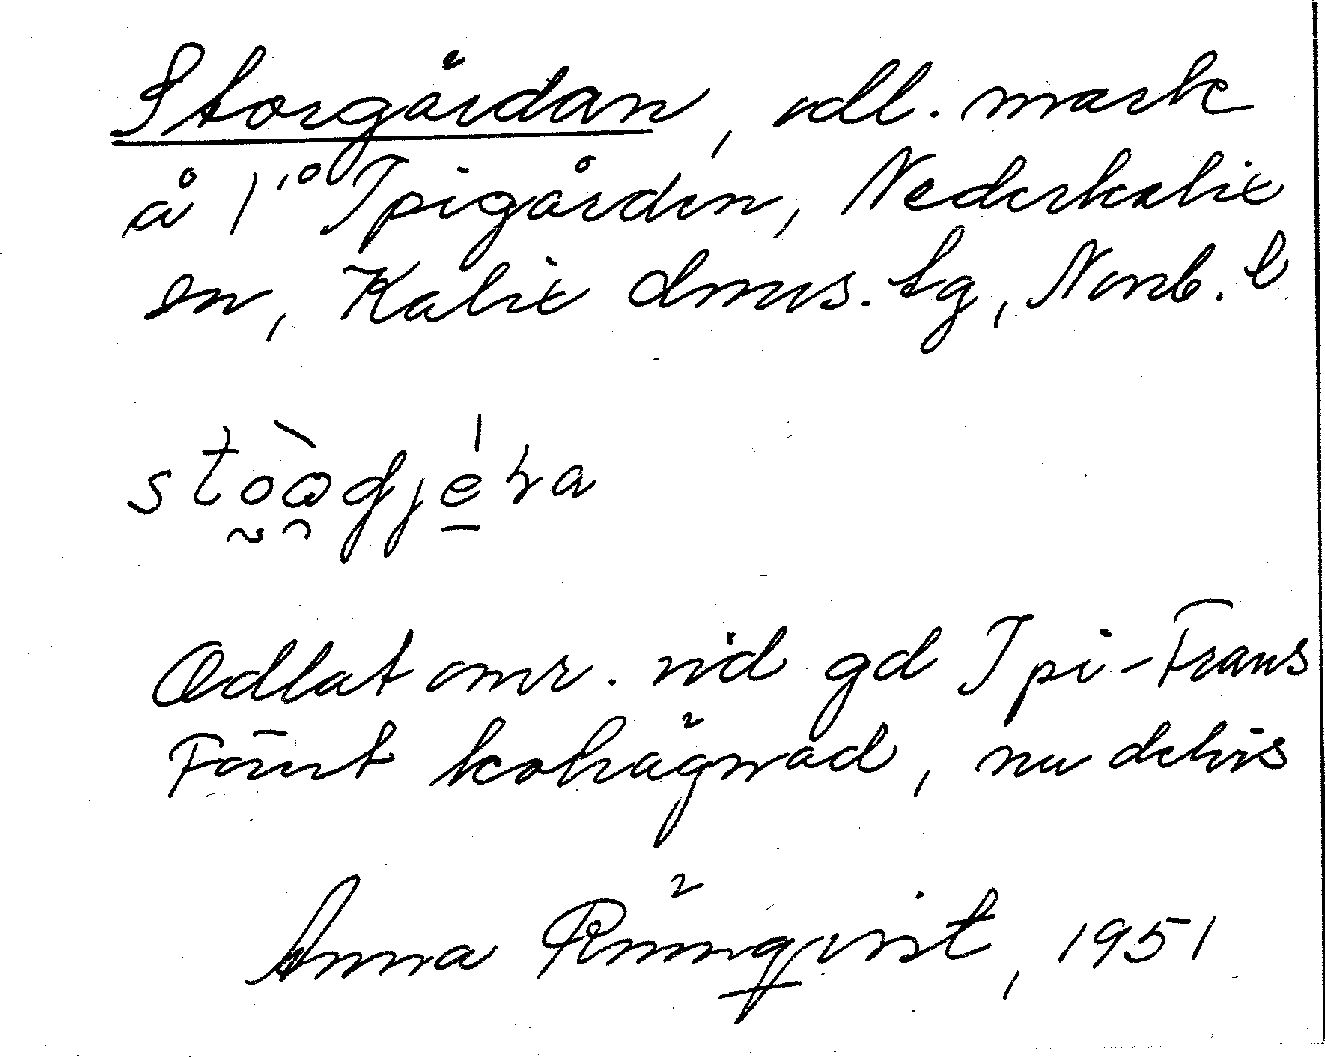 Storgårdan, odl. mark
å 1:10 Ipigården, Nederkalix
sn, Kalix dmvs. tg, Norrb. l
Odlat omr. vid gd Ipi-Frans
Förut kohägnad, nu delvis
Anna Rönnqvist, 1951